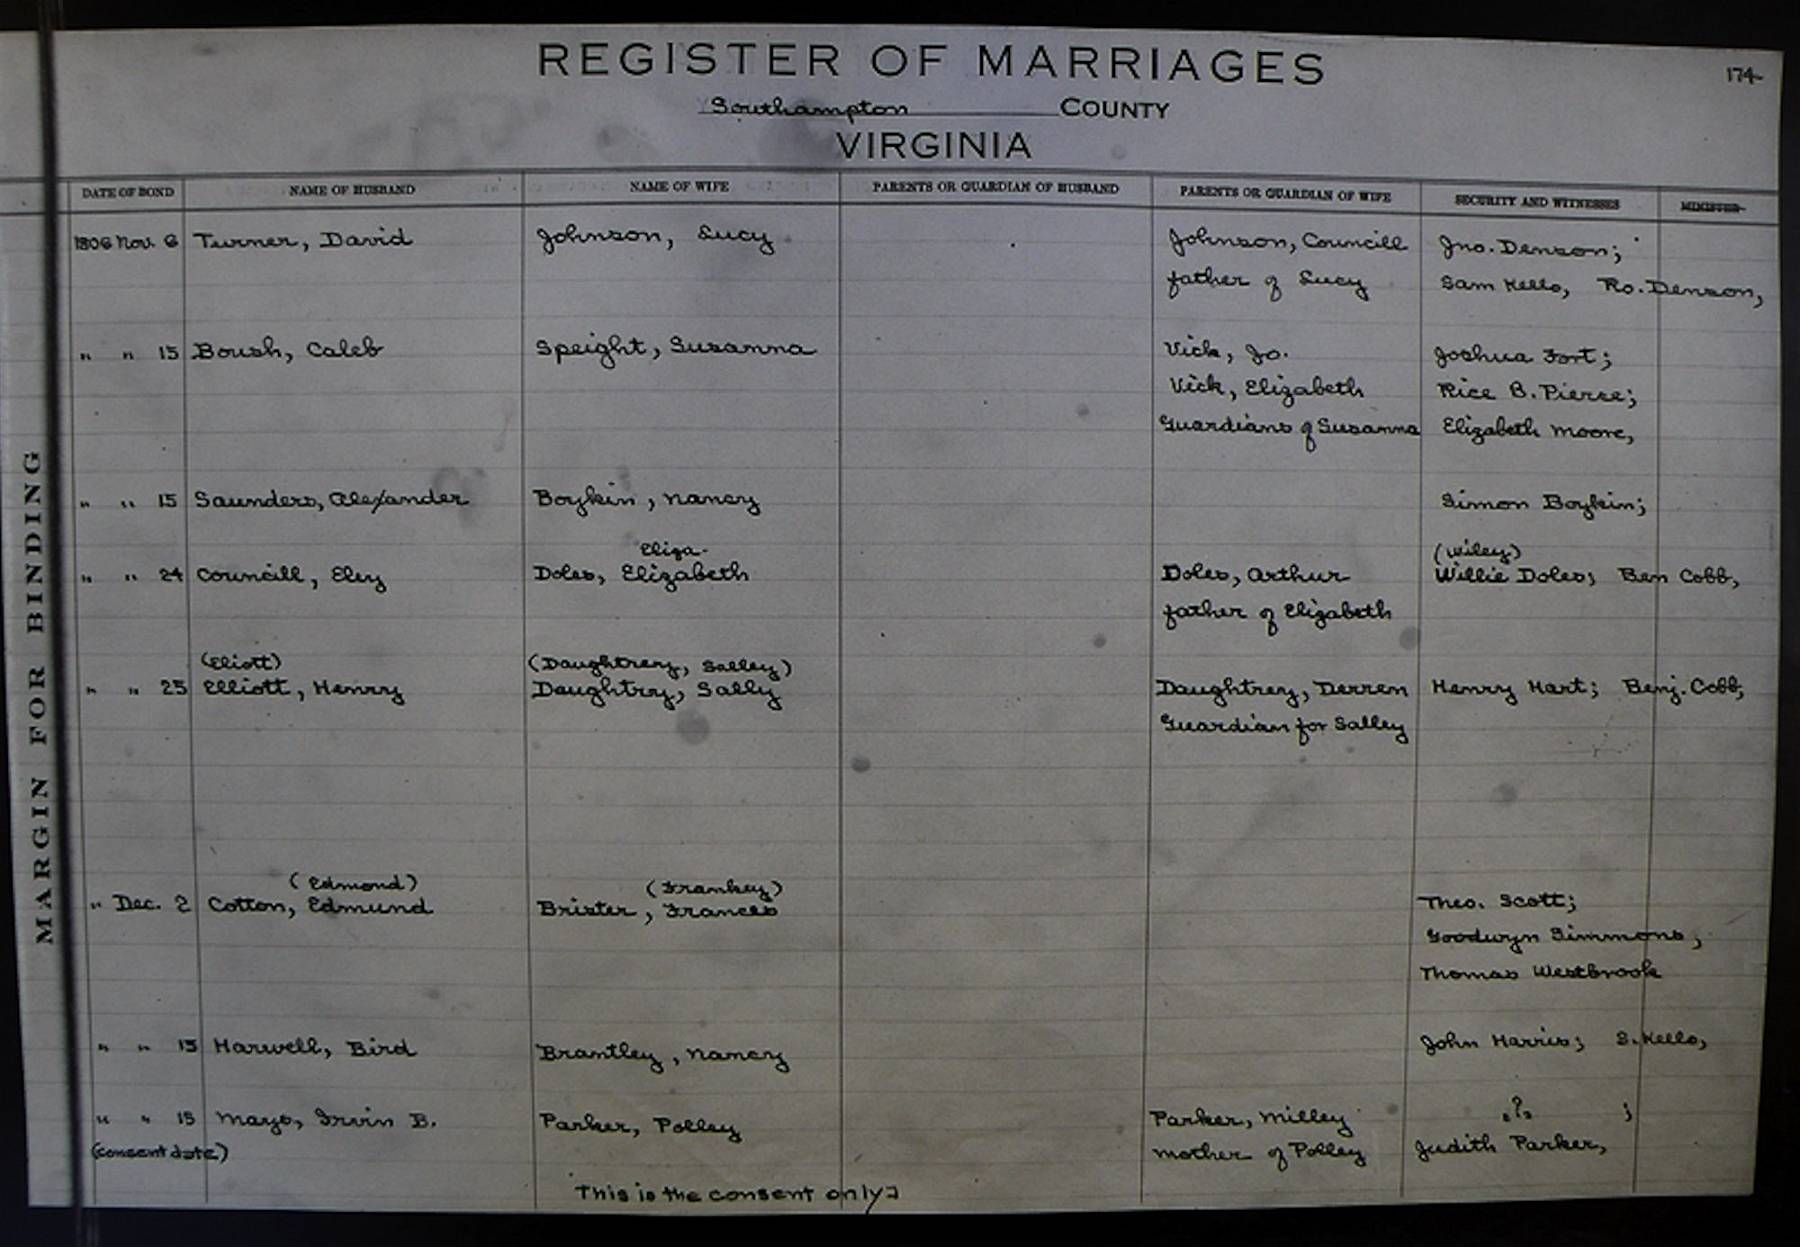 REGISTER OF MARRIAGES
174
Southampton COUNTY
VIRGINIA
MARGIN FOR BINDING
DATE OF BOND NAME OF HUSBAND NAME OF WIFE PARENTS OR GUARDIAN OF HUSBAND PARENTS OR GUARDIAN OF WIFE SECURITY AND WITNESSES MINISTER
1806 Nov. 6 Turner, David Johnson, Lucy Johnson, Councill Jno. Denson;
father of Lucy Sam Kello, Ro. Denson,
" " 15 Boush, Caleb Speight, Susanna Vick, Jo. Joshua Fort;
Vick, Elizabeth Rice B. Pierce;
Guardians of Susanna Elizabeth Moore,
" " 15 Saunders, Alexander Boykin, Nancy Simon Boykin;
Eliza. (Wiley)
" " 24 Councill, Eley Doles, Elizabeth Doles, Arthur Willie Doles; Ben Cobb,
father of Elizabeth
(Eliott) (Daughtrey, Salley)
" " 25 Elliott, Henry Daughtry, Sally Daughtrey, Derren Henry Hart; Benj. Cobb,
Guardian for Salley
(Edmond) (Frankey)
" Dec. 2 Cotton, Edmund Brister, Frances Theo. Scott;
Goodwyn Simmons,
Thomas Westbrook
" " 15 Harwell, Bird Brantley, Nancy John Harris; S. Kello,
" " 15 Mayo, Irvin B. Parker, Polley Parker, Milley ? ;
(consent date) mother of Polley Judith Parker,
This is the consent only